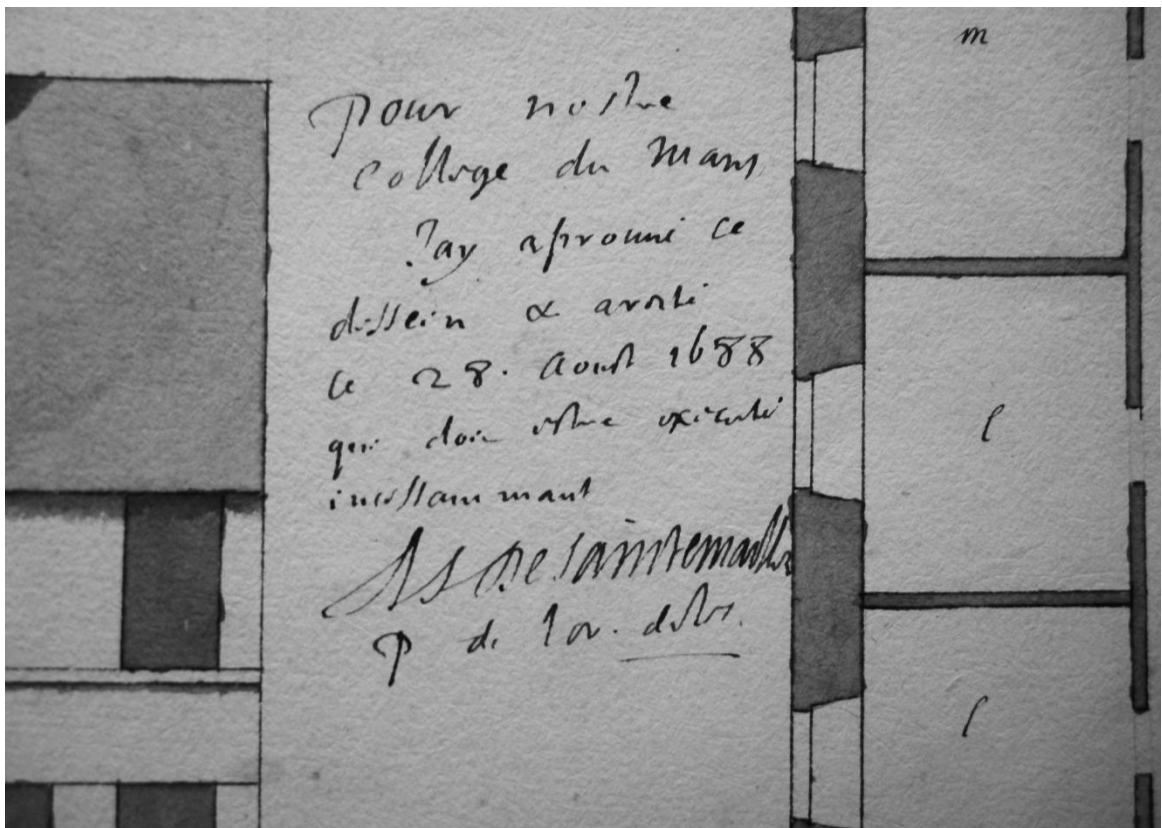 pour nostre
college du mans
J'ay aprouué ce
dessein & aresté
ce 28. Aoust 1688
qui doit estre executé
incessammant
De saintemarthe
P de l'or. de Ies.
m
l
l